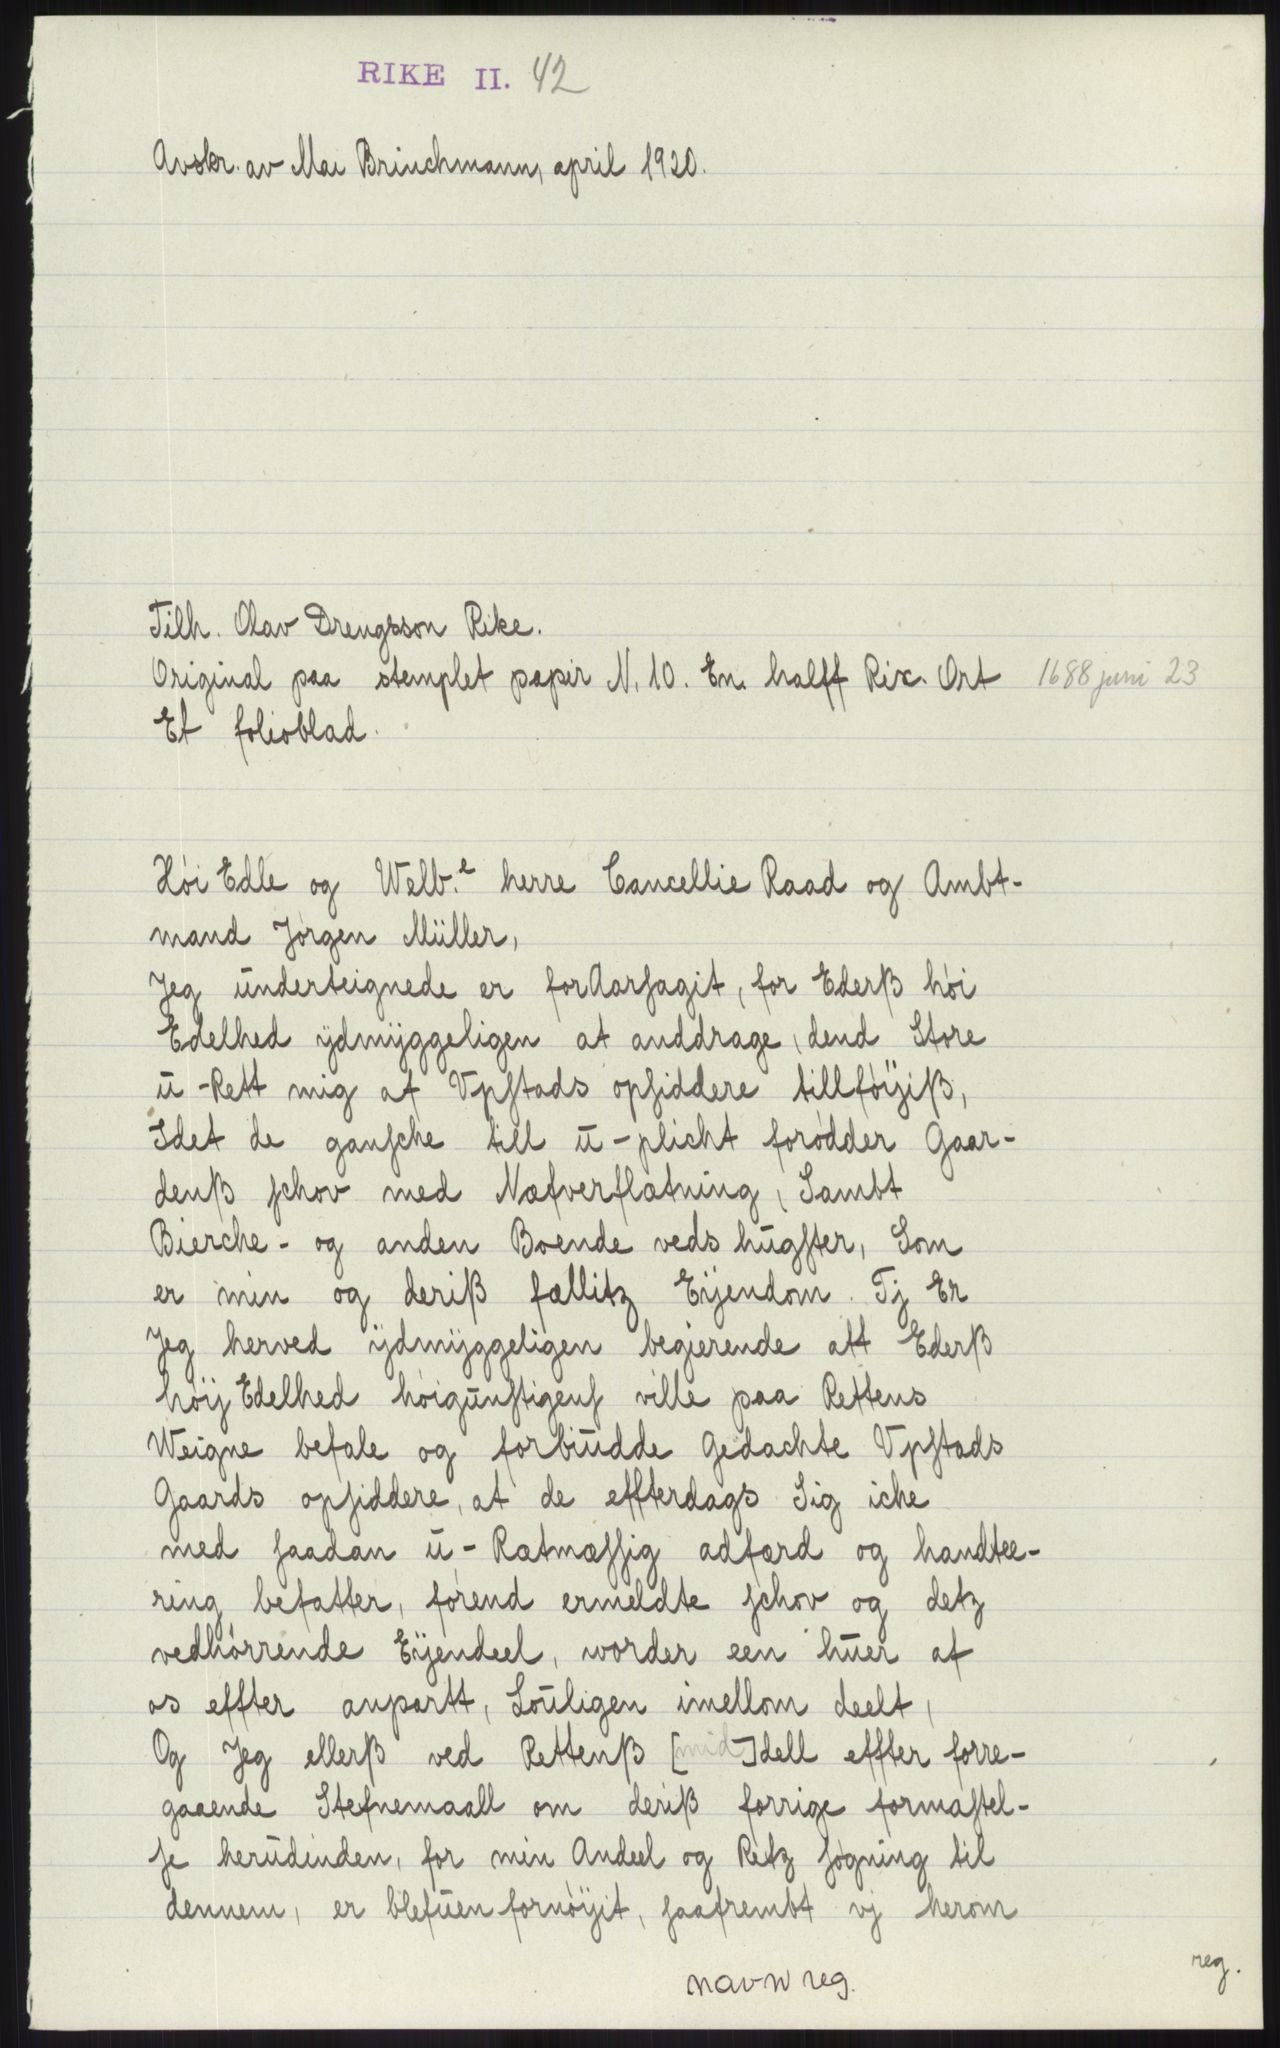 RIKE II. 42
Avskr. av Mai Brinchmann, april 1920.
Tilh. Olav Drengsson Rike.
Original paa stemplet papir N. 10. En halff Rix. Ort 1688 juni 23
Et folioblad.
Höi Edle og Welb.e herre Cancellie Raad og Ambt-
mand Jörgen Müller,
Jeg ūnderteignede er for Aarsagit, for Ederß höi
Edelhed ÿdmÿggeligen at anddrage, dend Store
ū-Rett mig af Vpstads opsiddere tillföÿiß,
Idet de gansche till ū-plicht forödder Gaar-
denß schov med Næfverflætning, Sambt
Bierche- og anden Boende veds hūgster, Som
er min og deriß fællitz Eÿendom. Tj Er
Jeg herved ÿdmÿggeligen begierende att Ederß
höij Edelhed höigūnstigens ville paa Rettens
Weigne befale og forbiūdde Gedachte Vpstads
Gaards opsiddere, at de effterdags Sig iche
med saadan ū-Rætmæssig adfærd og handtee-
ring befatter, förend ermeldte schov og detz
vedhörrende Eÿendeel, worder een hūer af
os effter anpartt, Loūligen imellom deelt,
Og Jeg ellerß ved Rettenß [mid]dell effter forre-
gaaende Stefnemaall om deriß forrige formastel-
se herūdinden, for min Andeel og Retz sögning til
dennem, er blefūen fornöÿit, saafrembt vj herom
navn reg.
reg.